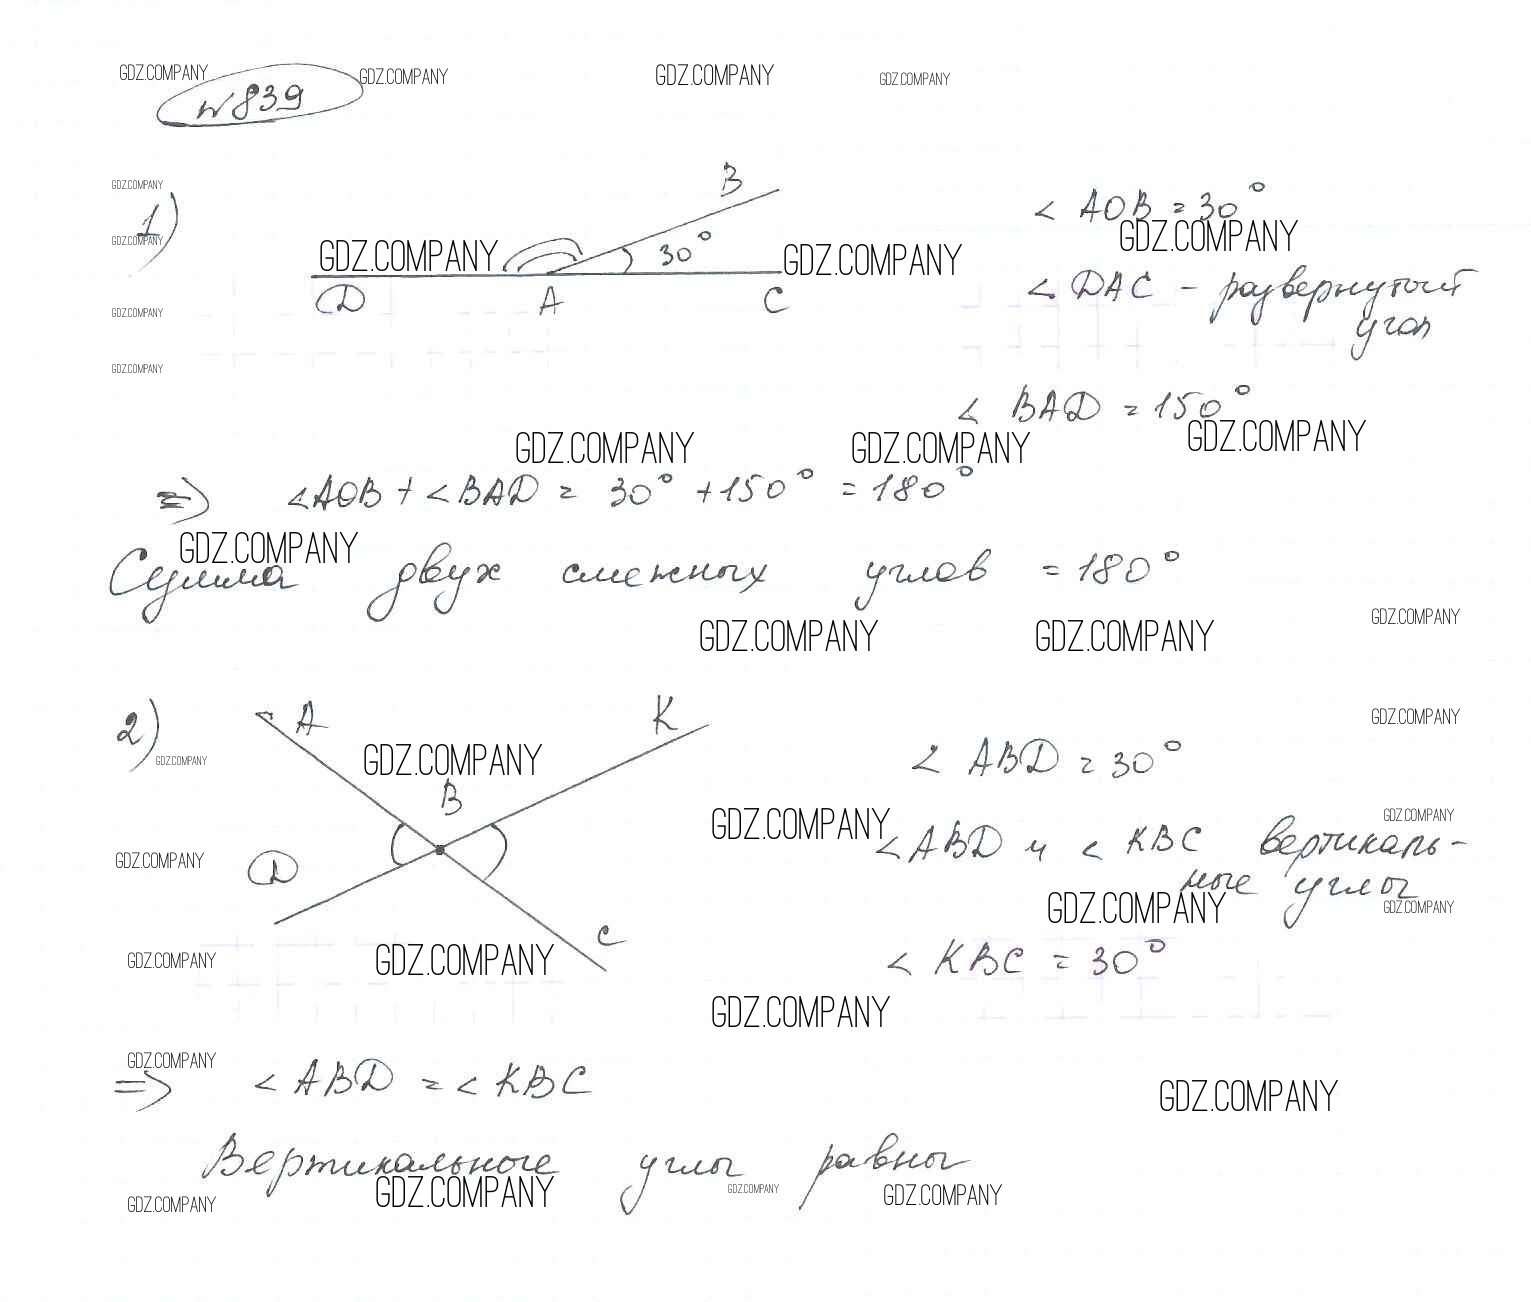 GDZ.COMPANY GDZ.COMPANY GDZ.COMPANY GDZ.COMPANY
№839
GDZ.COMPANY
1)
B
< AOB = 30°
GDZ.COMPANY
GDZ.COMPANY
GDZ.COMPANY 30° GDZ.COMPANY
D A C
< DAC - развернутый
угол
GDZ.COMPANY
GDZ.COMPANY
< BAD = 150°
GDZ.COMPANY GDZ.COMPANY GDZ.COMPANY
=> <AOB + <BAD = 30° + 150° = 180°
GDZ.COMPANY
Сумма двух смежных углов = 180°
GDZ.COMPANY
GDZ.COMPANY GDZ.COMPANY
2)
A K
GDZ.COMPANY
GDZ.COMPANY
GDZ.COMPANY
< ABD = 30°
B
GDZ.COMPANY
GDZ.COMPANY
<ABD и < KBC вертикаль-
ные углы
GDZ.COMPANY
D
GDZ.COMPANY
GDZ.COMPANY
C
< KBC = 30°
GDZ.COMPANY
GDZ.COMPANY
GDZ.COMPANY
GDZ.COMPANY
=> < ABD = < KBC
GDZ.COMPANY
Вертикальные углы равны
GDZ.COMPANY GDZ.COMPANY GDZ.COMPANY GDZ.COMPANY